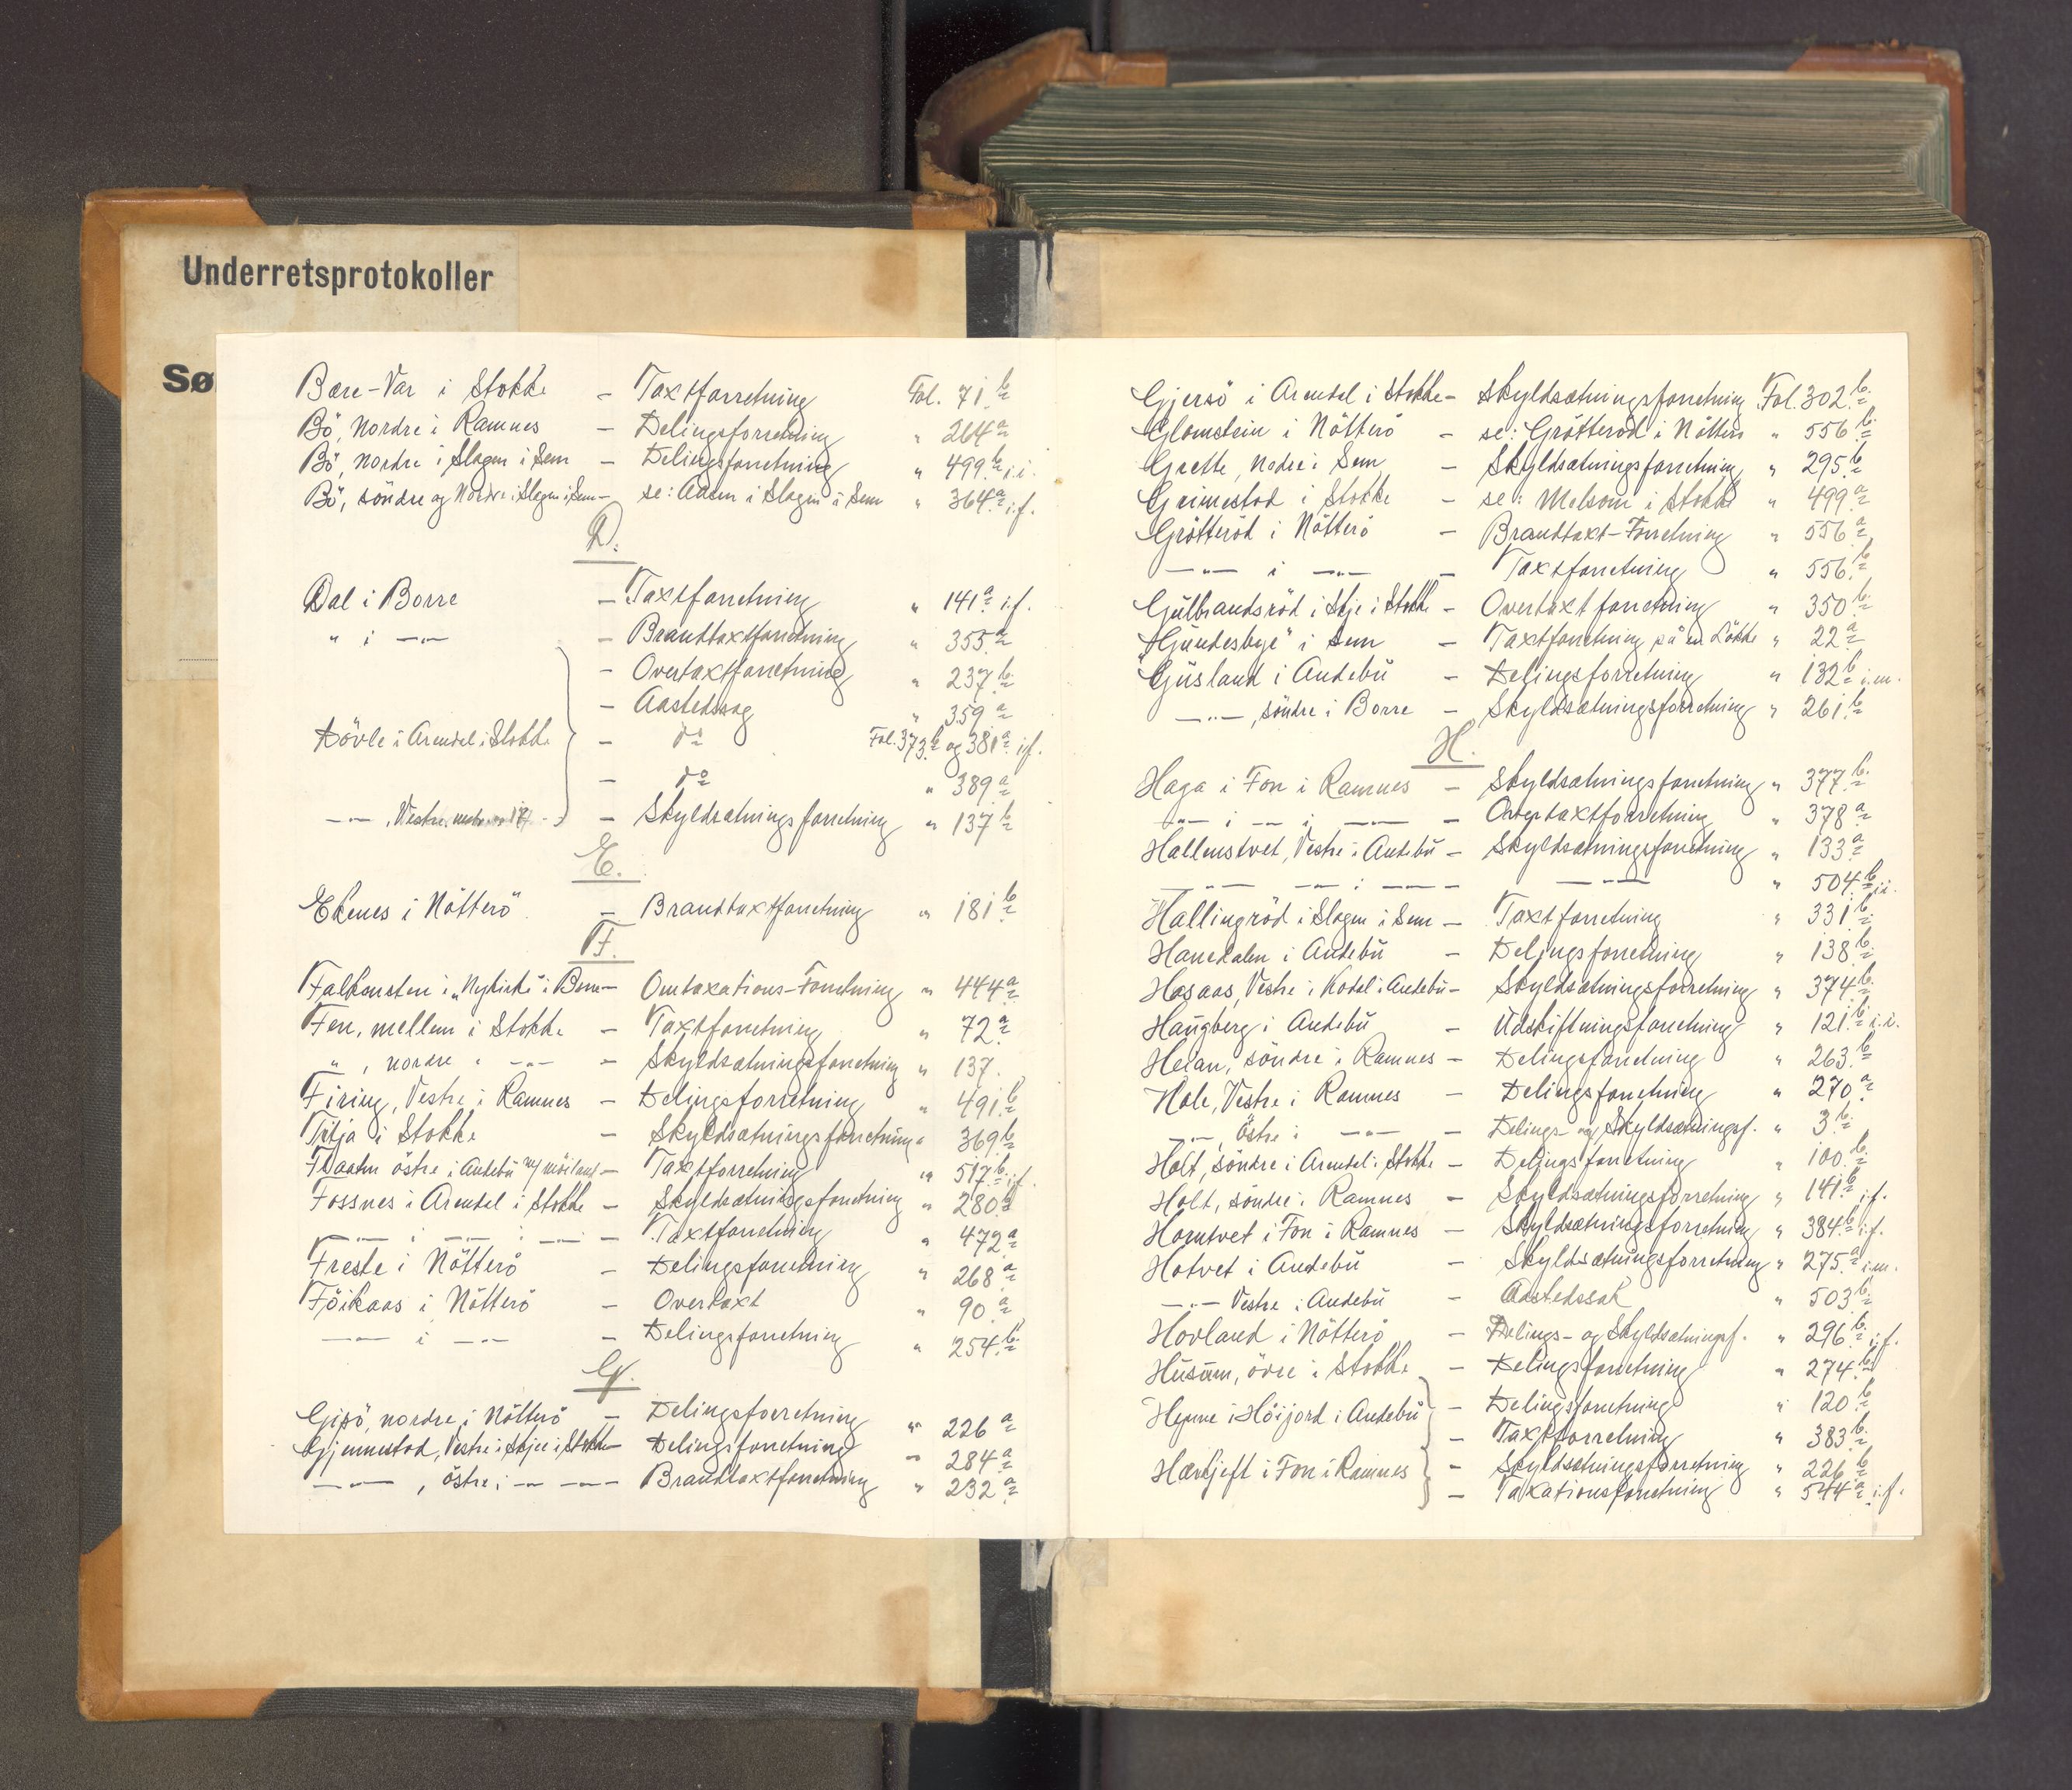 Underretsprotokoller
Sø
Bære-Var i Stokke – Taxtforretning Fol. 71 b
Bö, Nordre i Ramnes – Delingsforretning " 264 a
Bö, nordre i Slagen i Sem – Delingsforretning " 499 b i.i.
Bö, söndre og Nordre i Slagen i Sem – se: Aasen i Slagen i Sem " 364 a i.f.
D.
Dal i Borre – Taxtforretning " 141 a i.f.
" i –"– – Brandtaxtforretning " 355 a
– Overtaxtforretning " 237 b
– Aastedssag " 359 a
Dövle i Arendal i Stokke – do Fol. 373 b og 381 a i.f.
– do " 389 a
–"–, Vestre – Skyldsætningsforretning " 137 b
E.
Ekenes i Nötterö – Brandtaxtforretning " 181 b
F.
Falkensten i "Nykirke" i Borre – Omtaxations-Forretning " 444 a
Fen, mellem i Stokke – Taxtforretning " 72 a
" , nordre " –"– – Skyldsætningsforretning " 137.
Firing, Vestre i Ramnes – Delingsforretning " 491 b
Tilja i Stokke – Skyldsætningsforretning " 369 b
Flaatn östre i Andebu – Taxtforretning " 517 b i.f.
Fossnes i Arendal i Stokke – Skyldsætningsforretning " 280 a
–"– i –"– i –"– – Taxtforretning " 472 a
Freste i Nötterö – Delingsforretning " 268 a
Föikaas i Nötterö – Overtaxt " 90 a
–"– i –"– – Delingsforretning " 254 b
G.
Gipö, nordre i Nötterö – Delingsforretning " 226 a
Gjennestad, Vestre i Skjee i Stokke – Delingsforretning " 284 a
–"– , östre i –"– –"– Brandtaxtforretning " 232 a
Gjersö i Arendal i Stokke – Skyldsætningsforretning Fol. 302 b
Glomstein i Nötterö – se: Grötteröd i Nötterö " 556 b
Grette, nordre i Sem – Skyldsætningsforretning " 295 b
Grimestad i Stokke – se: Melsom i Stokke " 499 a
Grötteröd i Nötterö – Brandtaxt-Forretning " 556 a
–"– i –"– – Taxtforretning " 556 b
Gulbrandsröd i Skje i Stokke – Overtaxtforretning " 350 b
i Sem – Taxtforretning på en Lökke " 22 a
Gusland i Andebu – Delingsforretning " 132 b i.m.
–"–, söndre i Borre – Skyldsætningsforretning " 261 b
H.
Haga i Fon i Ramnes – Skyldsætningsforretning " 377 b
–"– i –"– i –"– – Overtaxtforretning " 378 a
Hallenstvet, Vestre i Andebu – Skyldsætningsforretning " 133 a
–"– –"– i –"– – –"– " 504 b i.i.
Hallingröd i Slagen i Sem – Taxtforretning " 331 b
Hanedalen i Andebu – Delingsforretning " 138 b
Hasaas, Vestre i Kodal i Andebu – Skyldsætningsforretning " 374 b
Haugberg i Andebu – Udskiftningsforretning " 121 b i.i.
Heian, söndre i Ramnes – Delingsforretning " 263 b
Hole, Vestre i Ramnes – Delingsforretning " 270 a
–"–, östre i –"– – Delings- og Skyldsætningsf. " 3 b
Holt, söndre i Arendal i Stokke – Delingsforretning " 100 b
Holt, söndre i Ramnes – Skyldsætningsforretning " 141 b i.f.
Horntvet i Fon i Ramnes – Skyldsætningsforretning " 384 b i.f.
Hotvet i Andebu – Skyldsætningsforretning " 275 a i.m.
–"– Vestre i Andebu – Aastedssak " 503 b
Hovland i Nötterö – Delings- og Skyldsætningsf. " 296 b i.f.
Husum, övre i Stokke – Delingsforretning " 274 b
Hynne i Höijord i Andebu – Delingsforretning " 120 b
– Taxtforretning " 383 b
Hærkjeft i Fon i Ramnes – Skyldsætningsforretning " 226 b
– Taxationsforretning " 544 a i.f.